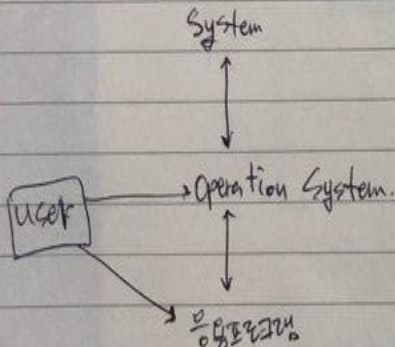 System
user
Operation System.
응용프로그램